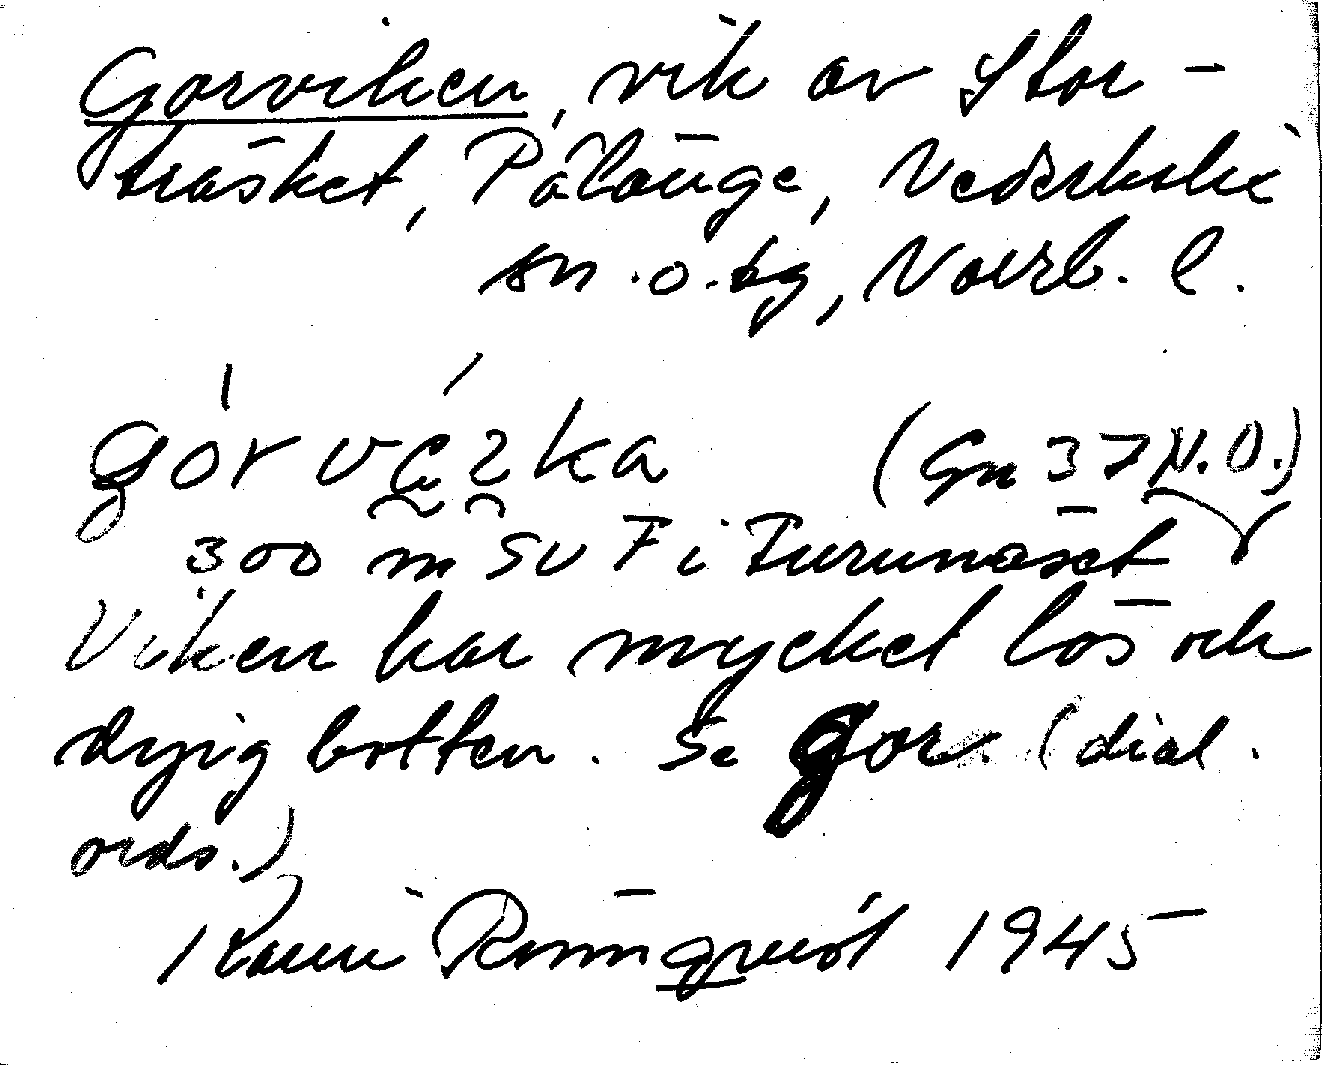 Gorviken, vik av Stor-
träsket, Pålänge, Nederkalix
sn. o. tg, Norrb. l.
(Gn 37 N.O.)
300 m SV F i Furunäset
Viken har mycket lös och
dyig botten. Se gor (dial.
ords.)
Karin Rönnqvist 1945